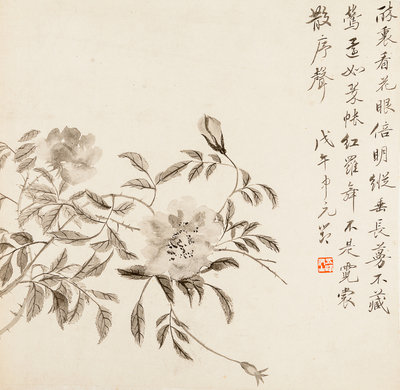 醉裏看花眼倍明縱垂長蔓不藏
鶯還如翠帳紅羅舞不是霓裳
散序聲
戊午中元